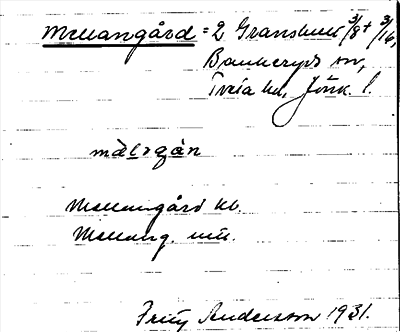 Mellangård = 2 Granshult 3/8 + 3/16,
Bankeryds sn,
Tveta hd, Jönk. l.
mællgån
Mellangård kb.
Mellang. mtl.
Fritz Andersson 1931.